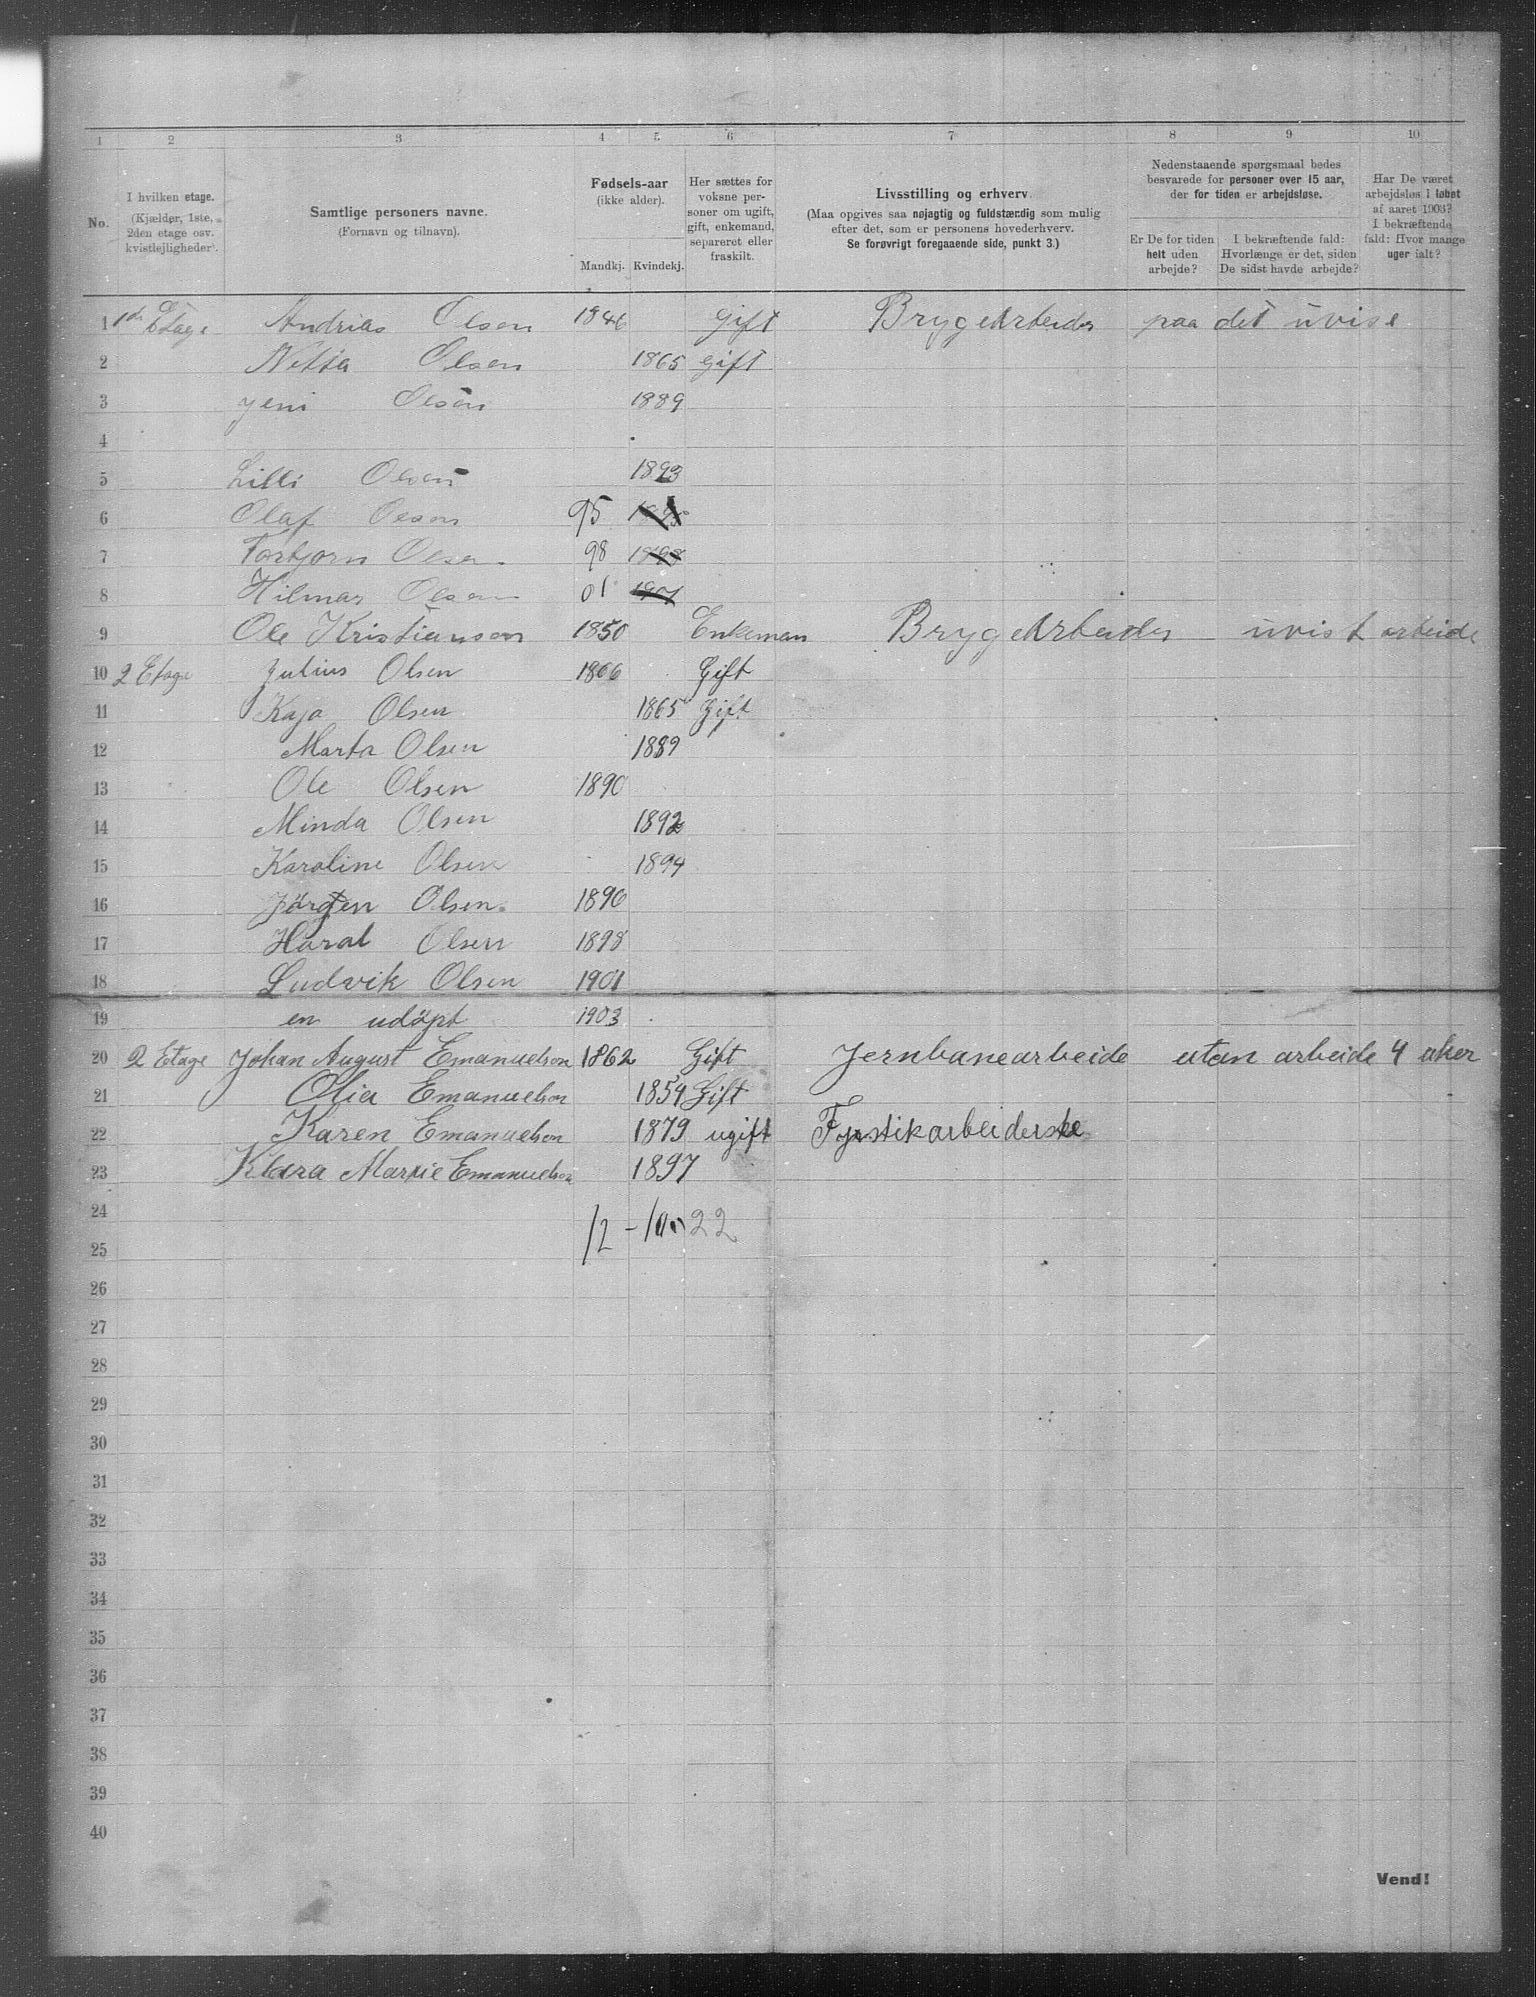 1 2 3 4 5. 6 7 8 9 10
No.
I hvilken etage.
(Kjælder, 1ste,
2den etage osv.
kvistlejligheder).
Samtlige personers navne.
(Fornavn og tilnavn).
Fødsels-aar
(ikke alder).
Mandkj. Kvindekj.
Her sættes for
voksne per-
soner om ugift,
gift, enkemand,
separeret eller
fraskilt.
Livsstilling og erhverv.
(Maa opgives saa nøjagtig og fuldstærdig som mulig
efter det, som er personens hovederhverv.
Se forøvrigt foregaaende side, punkt 3.)
Nedenstaaende spørgsmaal bedes
besvarede for personer over 15 aar,
der for tiden er arbejdsløse.
Er De for tiden
helt uden
arbejde?
I bekræftende fald:
Hvorlænge er det, siden
De sidst havde arbejde?
Har De været
arbejdsløs i løbet
af aaret 1903?
I bekræftende
fald: Hvor mange
uger ialt?
1 Etage Andrias Olsen 1846 gift BrygeArbeider paa det uvise
2 Netta Olsen 1865 gift
3 Jeni Olsen 1889
4
5 Lilli Olsen 1893
6 Olaf Olsen 95 1895
7 Torbjorn Olsen 98 1898
8 Hilmar Olsen 01 1901
9 Ole Kristiansen 1850 Enkeman BrygeArbeider uvist arbeide
10 2 Etage Julius Olsen 1866 Gift
11 Kaja Olsen 1865 Gift
12 Marta Olsen 1889
13 Ole Olsen 1890
14 Minda Olsen 1892
15 Karoline Olsen 1894
16 Jörgen Olsen. 1896
17 Haral Olsen 1898
18 Ludvik Olsen 1901
19 en udöpt 1903
20 2 Etage Johan August Emanuelson 1862 Gift Jernbanearbeide utan arbeide 4 uker
21 Olia Emanuelson 1854 Gift
22 Karen Emanuelson 1879 ugift Fyrstikarbeiderske
23 Klara Marie Emanuelson 1897
24
12 - 10 22
25
26
27
28
29
30
31
32
33
34
35
36
37
38
39
40
Vend!